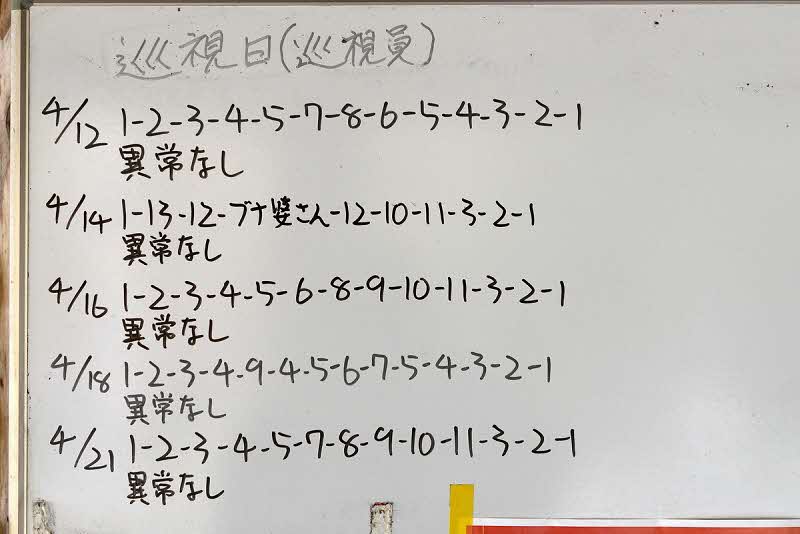 巡視日(巡視員)
4/12 1-2-3-4-5-7-8-6-5-4-3-2-1
異常なし
4/14 1-13-12-ブナ婆さん-12-10-11-3-2-1
異常なし
4/16 1-2-3-4-5-6-8-9-10-11-3-2-1
異常なし
4/18 1-2-3-4-9-4-5-6-7-5-4-3-2-1
異常なし
4/21 1-2-3-4-5-7-8-9-10-11-3-2-1
異常なし